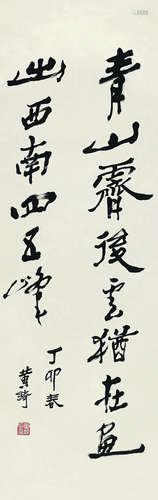 青山霽後雲猶在畫
出西南四五峰
丁卯春
黄綺